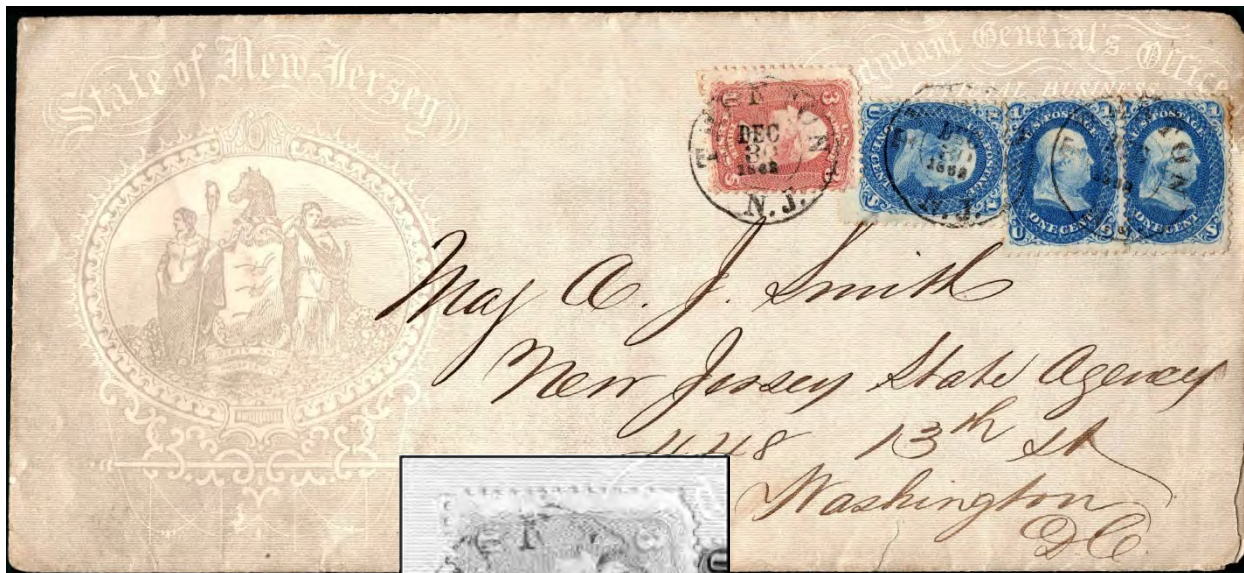 State of New Jersey
Adjutant General's Office
OFFICIAL BUSINESS
TRENTON
DEC
30
1862
N. J.
DEC
1862
N. J.
U.S. POSTAGE
ONE CENT
U S
U.S. POSTAGE
ONE CENT
U S
Maj A. J. Smith
New Jersey State Agency
448 13th st
Washington
D.C.